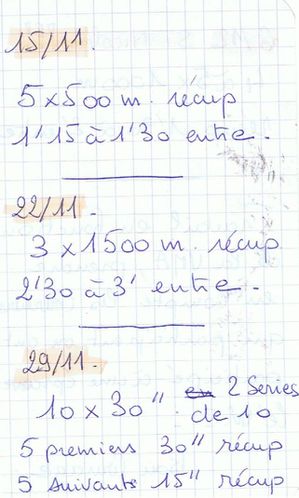 15/11.
5 x 500 m. récup
1'15 à 1'30 entre.
22/11.
3 x 1500 m. récup
2'30 à 3' entre.
29/11.
10 x 30'' en 2 Series
de 10
5 premiers 30'' récup
5 suivants 15'' récup